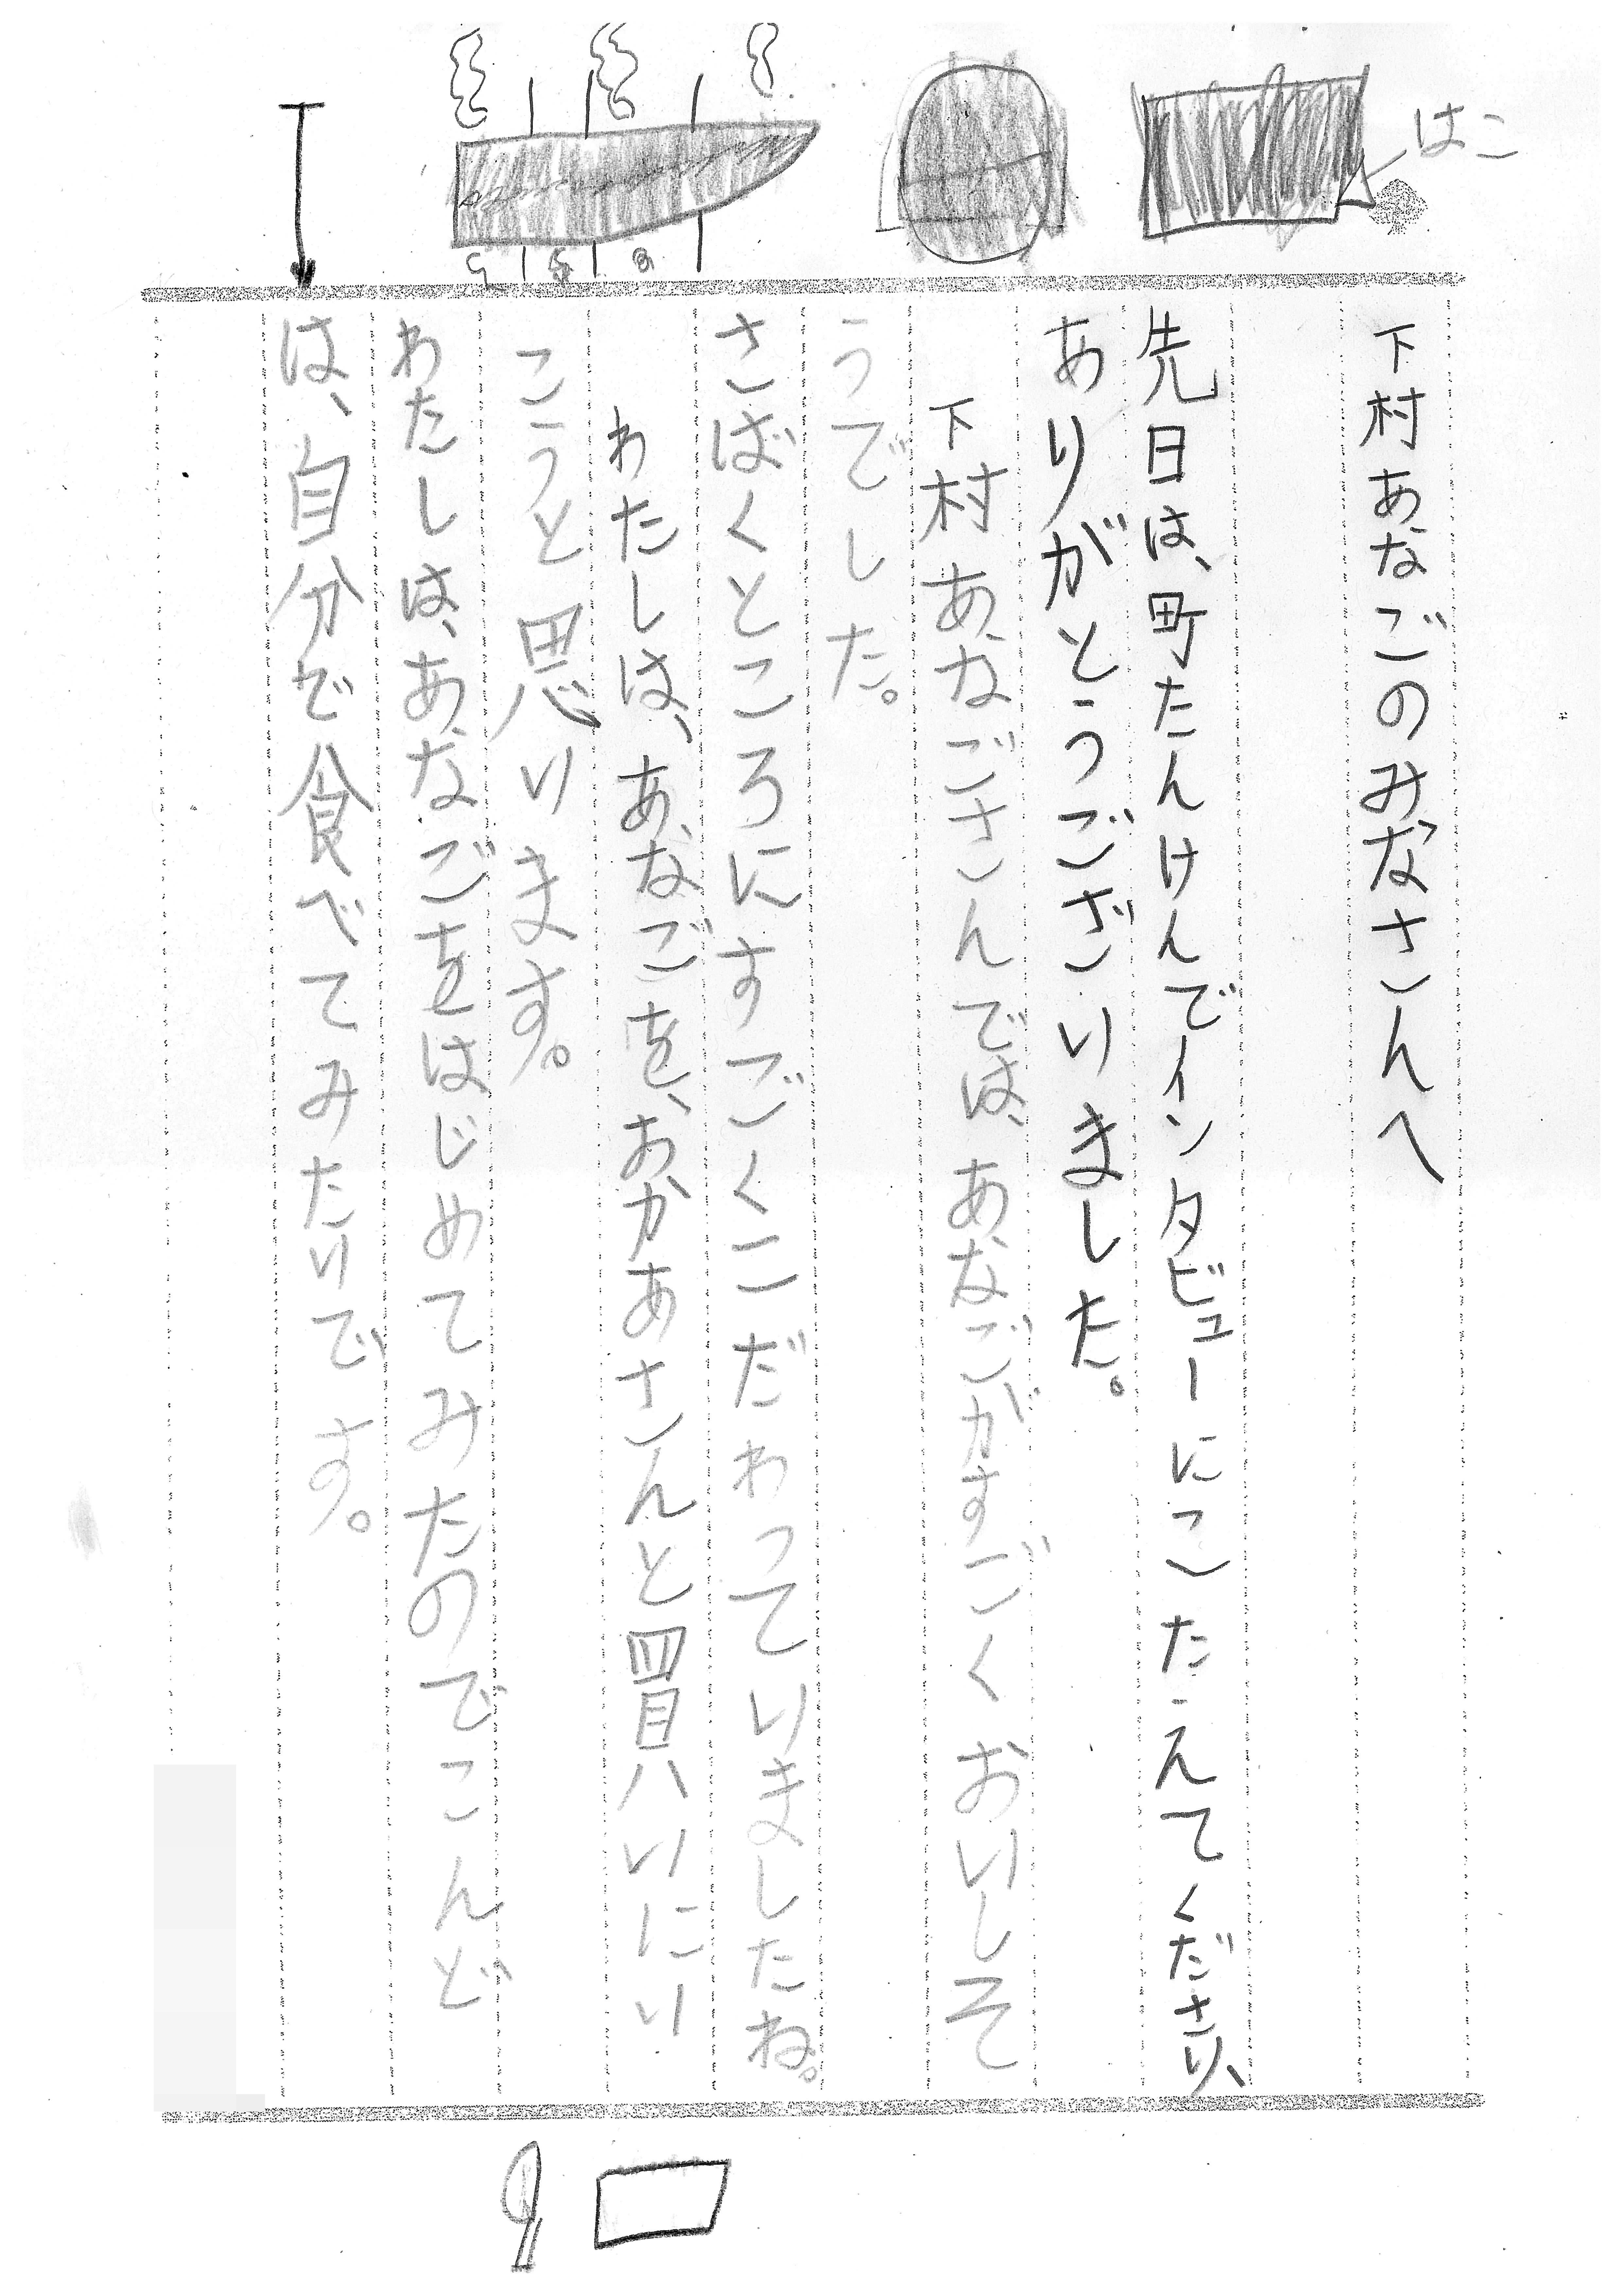 はこ
下村あなごのみなさんへ
先日は、町たんけんでインタビューにこたえてくださり、
ありがとうございました。
下村あなごさんでは、あなごがすごくおいしそ
うでした。
さばくところにすごくこだわっていましたね。
わたしは、あなごを、おかあさんと買いにい
こうと思います。
わたしは、あなごをはじめてみたのでこんど
は、自分で食べてみたいです。